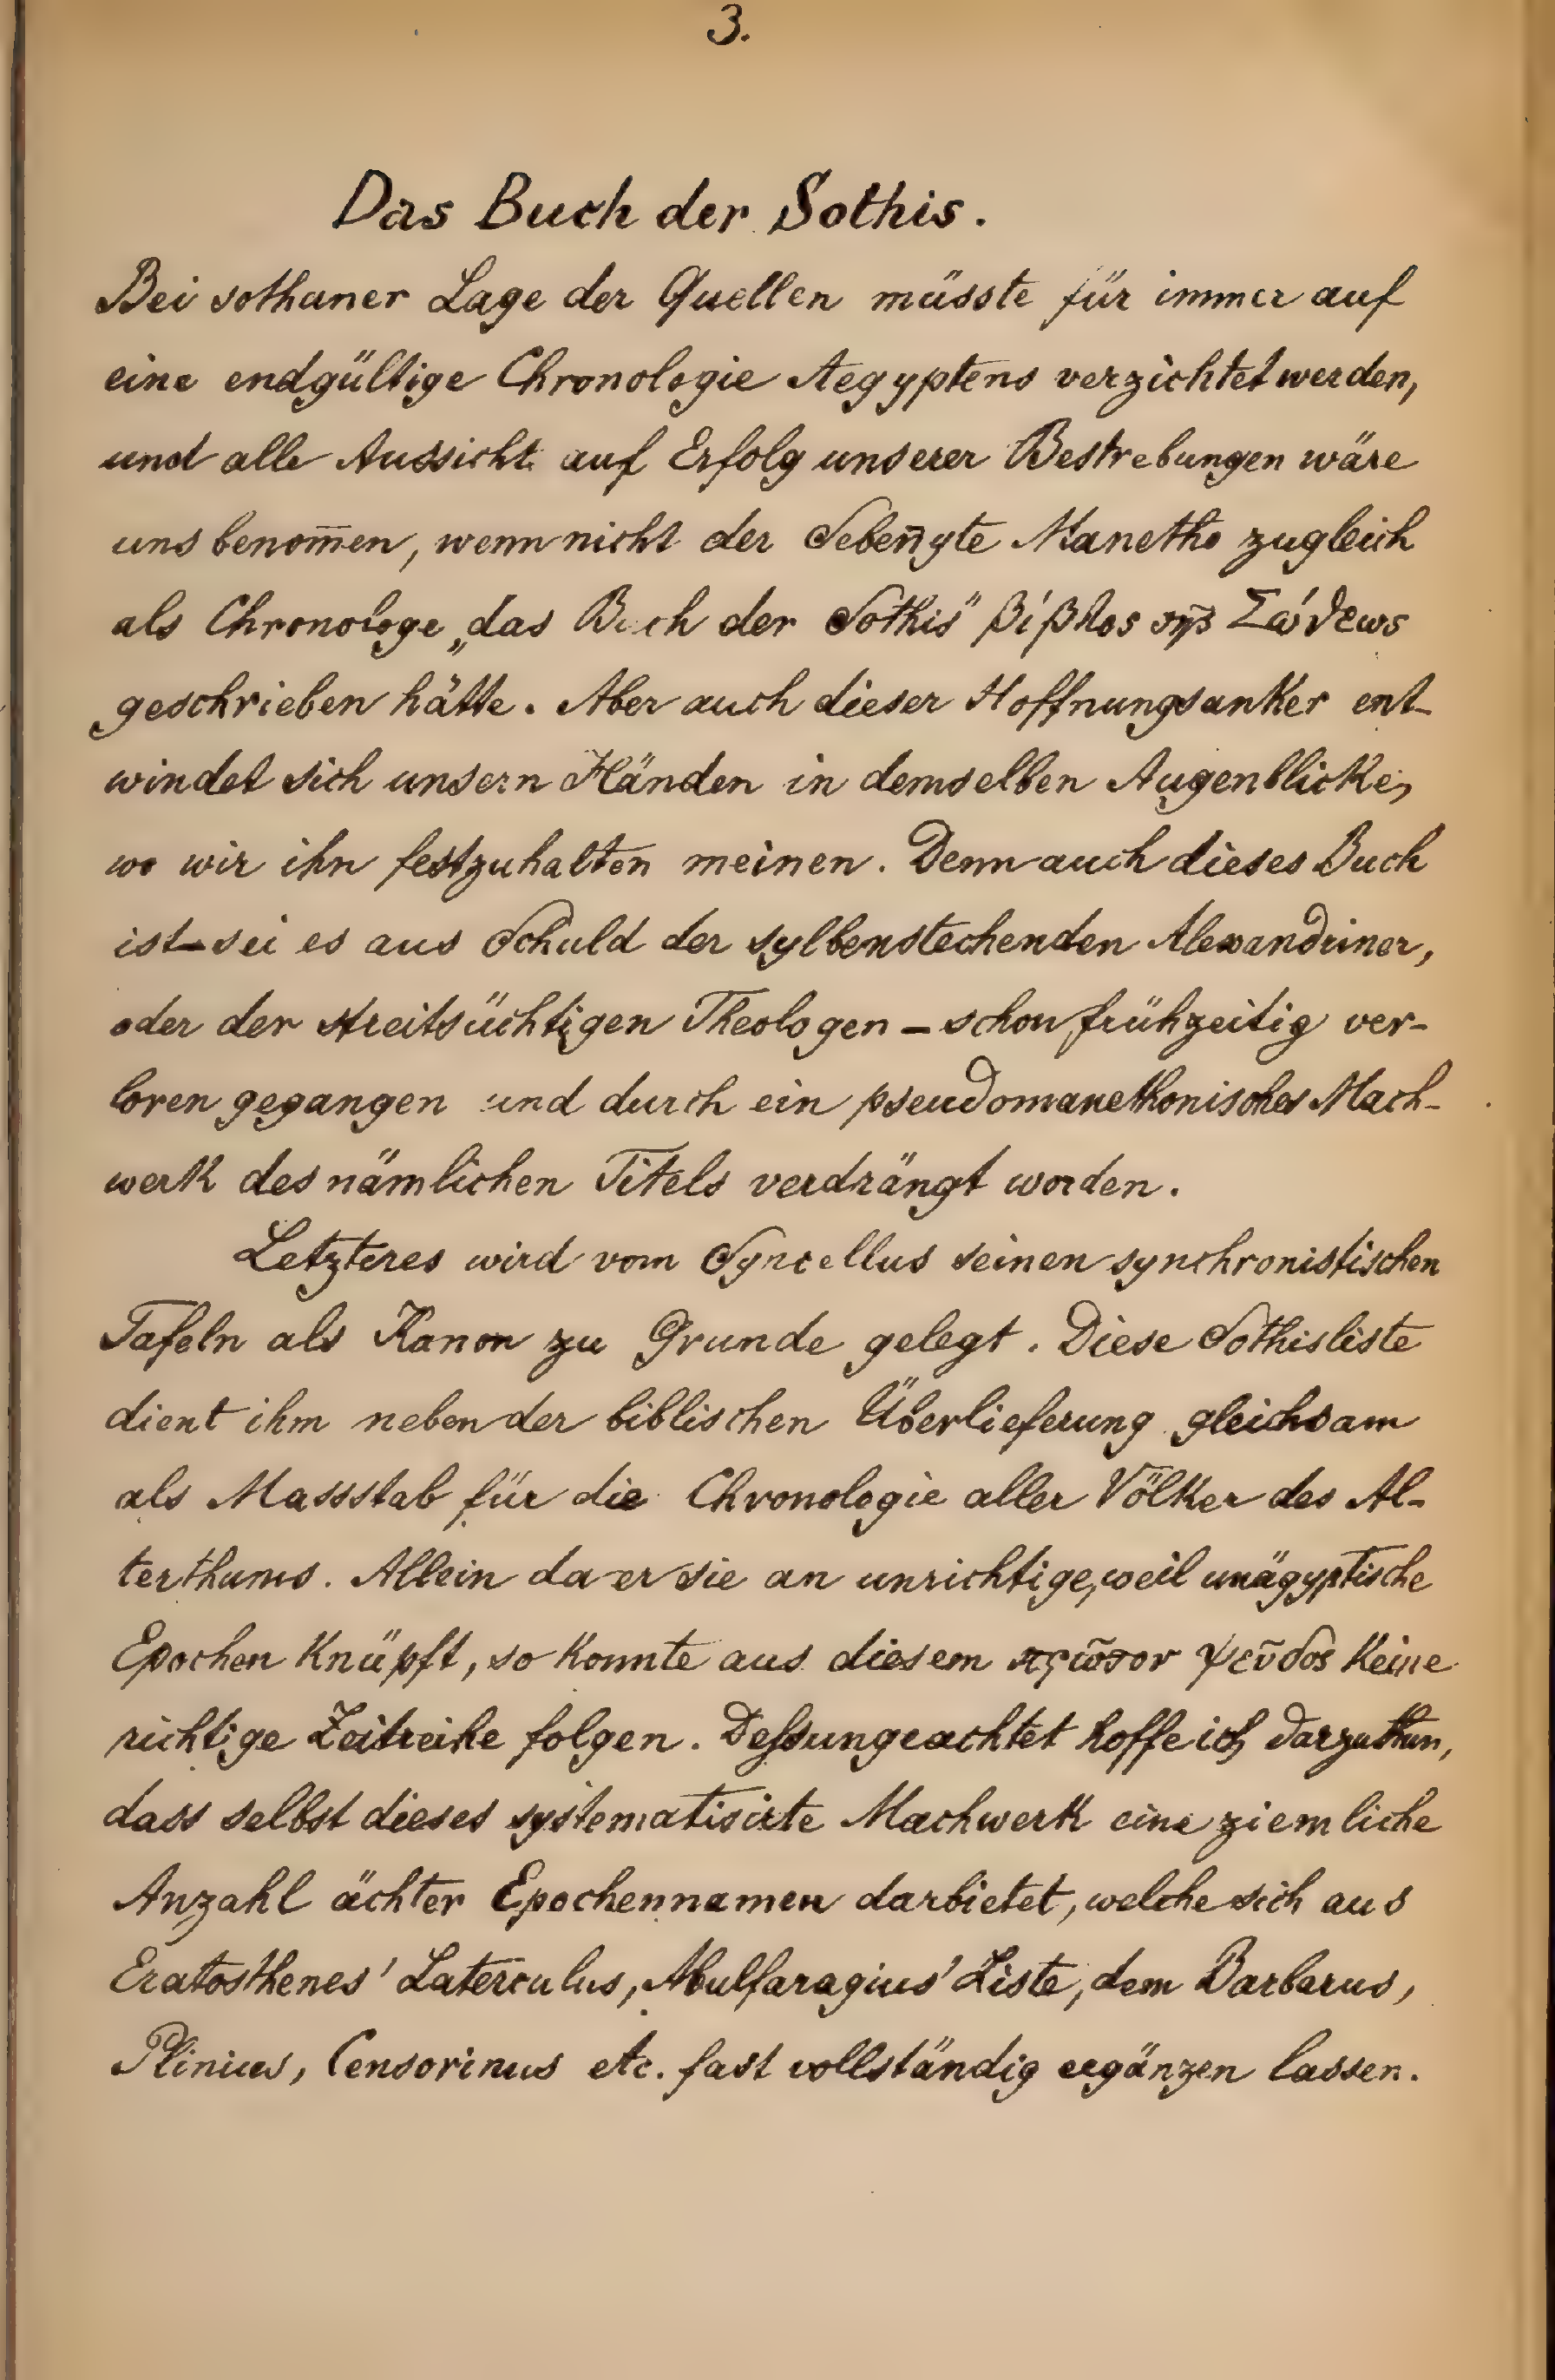 3.
Das Buch der Sothis.
Bei sothaner Lage der Quellen müsste für immer auf
eine endgültige Chronologie Aegyptens verzichtet werden,
und alle Aussicht auf Erfolg unserer Bestrebungen wäre
uns benom̄en, wenn nicht der Seben̄yte Manetho zugleich
als Chronologe „das Buch der Sothis" βίβλος τῆς Σώθεως
geschrieben hätte. Aber auch dieser Hoffnungsanker ent-
windet sich unsern Händen in demselben Augenblicke,
wo wir ihn festzuhalten meinen. Denn auch dieses Buch
ist – sei es aus Schuld der sylbenstechenden Alexandriner,
oder der streitsüchtigen Theologen – schon frühzeitig ver-
loren gegangen und durch ein pseudomanethonisches Mach-
werk des nämlichen Titels verdrängt worden.
Letzteres wird vom Syncellus seinen synchronistischen
Tafeln als Kanon zu Grunde gelegt. Diese Sothisliste
dient ihm neben der biblischen Überlieferung gleichsam
als Massstab für die Chronologie aller Völker des Al-
terthums. Allein da er sie an unrichtige, weil unägyptische
Epochen knüpft, so konnte aus diesem πρῶτον ψεῦδος keine
richtige Zeitreihe folgen. Deſsungeachtet hoffe ich darzuthun,
dass selbst dieses systematisirte Machwerk eine ziemliche
Anzahl ächter Epochennamen darbietet, welche sich aus
Eratosthenes' Laterculus, Abulfaragius' Liste, dem Barbarus,
Plinius, Censorinus etc. fast vollständig ergänzen lassen.